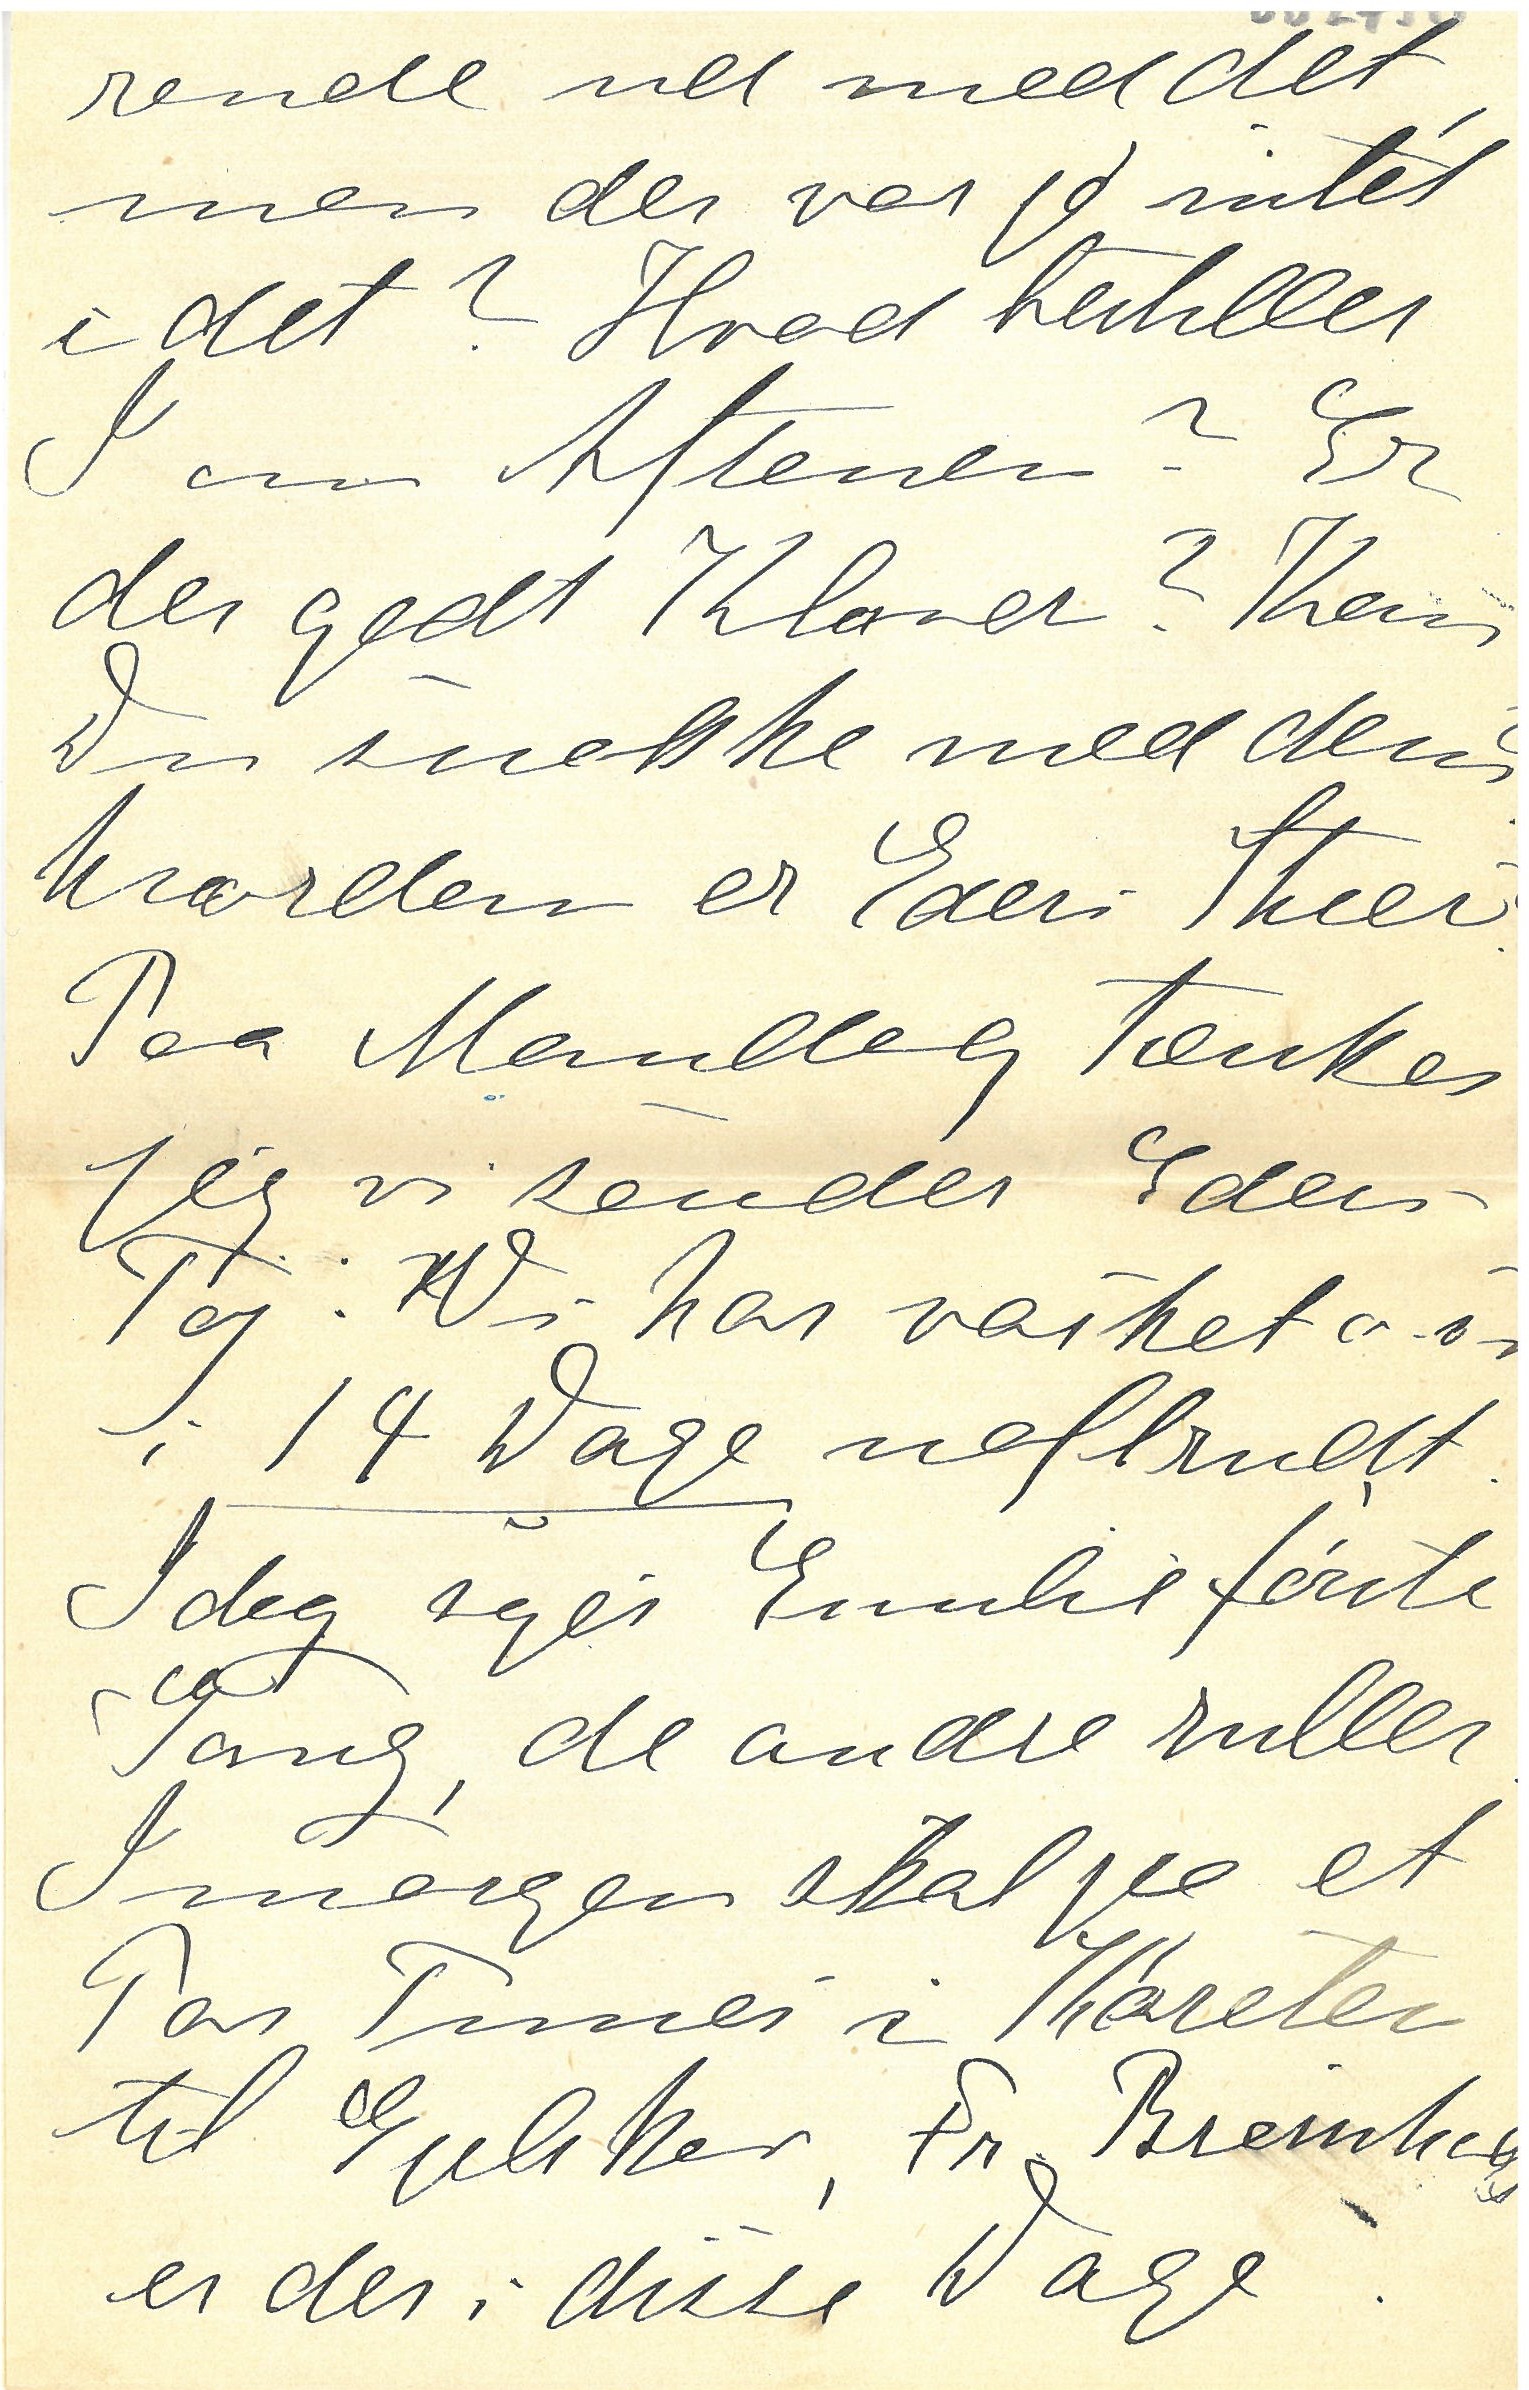 rende ud med det,
men der var jo intet
i det? Hvad bestiller
I om Aftenen? Er
der godt Klaver? Kan
Du snakke med dem
hvordan er Eders
Paa Mandag tænker
jeg vi sender Eders
Tøj. Vi har vasket o. s
i 14 Dage uafbrudt.
Idag syer Emilie første
Gang, de andre ruller.
Imorgen skal jeg et
Par Timer i Kareten
til Gelskov, Fr.
er der i disse Dage.